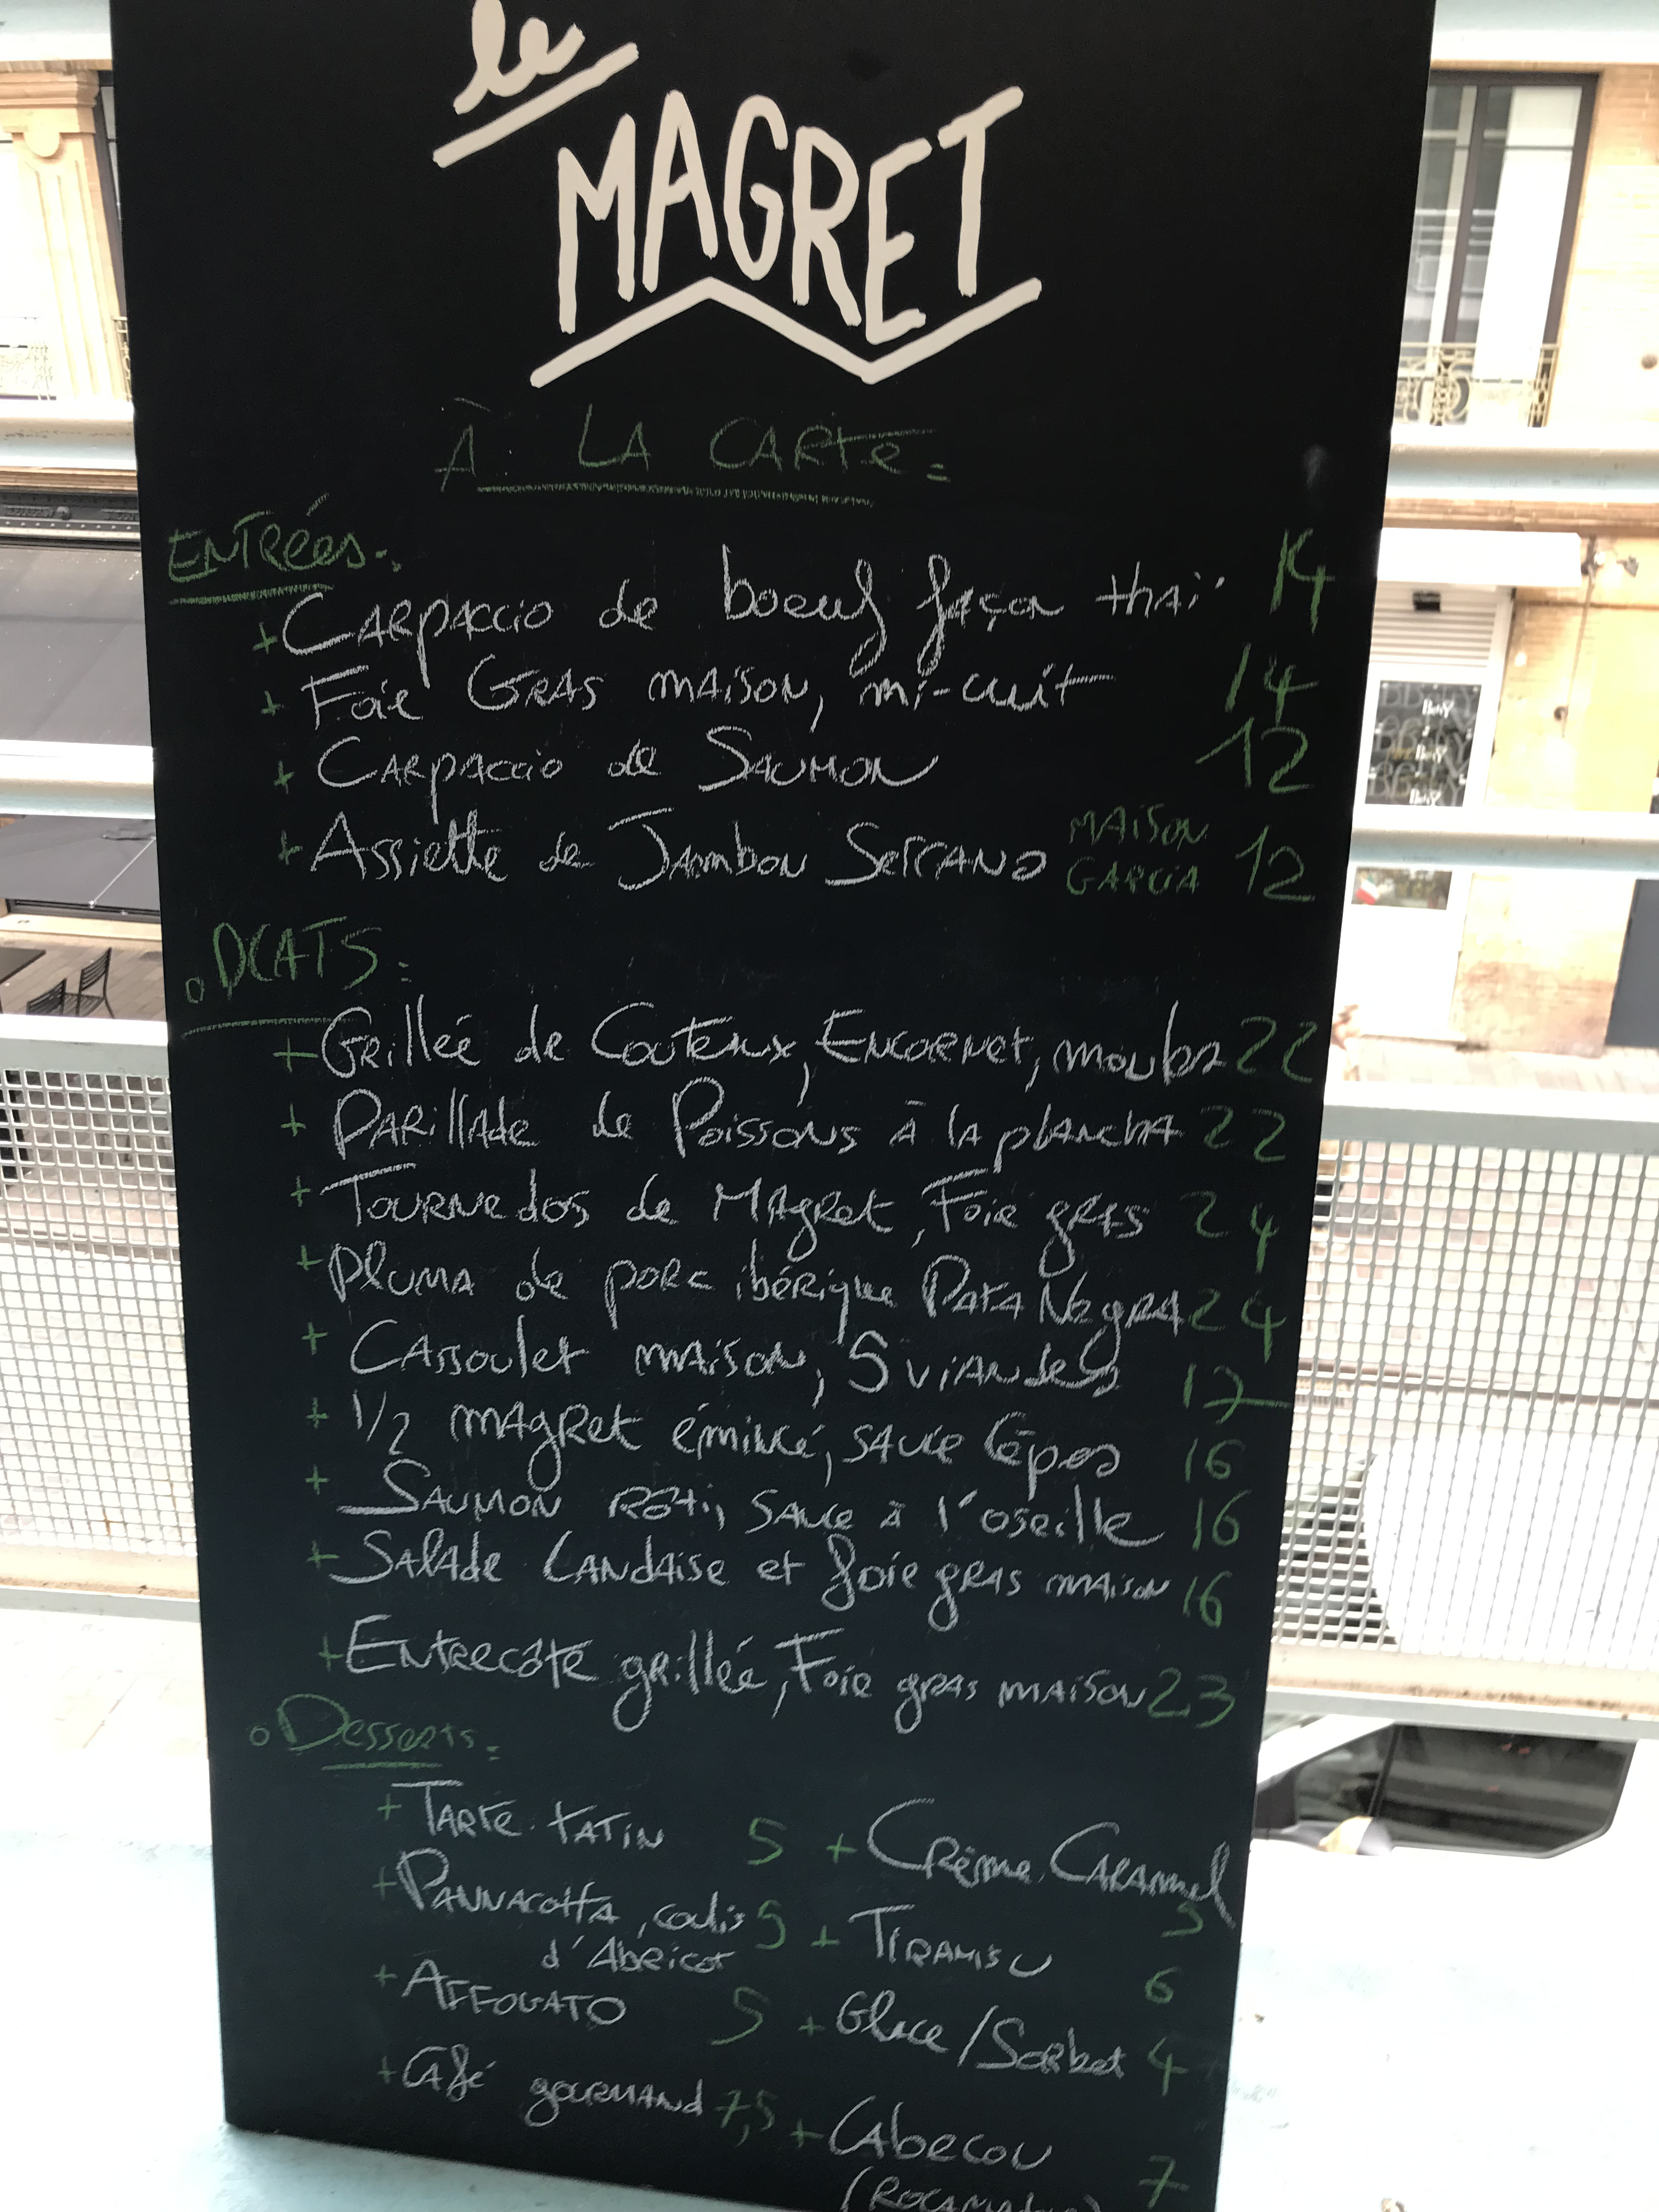 le
MAGRET
À LA CARTE =
ENTRÉES:
+ CARPACCIO de boeuf façon thaï 14
+ Foie GRAS MAISON, mi-cuit 14
+ CARPACCIO de SAUMON 12
+ Assiette de JAMBON SERRANO MAISON GARCIA 12
o PLATS =
+ GRillée de Couteaux, ENCORNet, moules 22
+ PARillAde de Poissons À lA plANCHA 22
+ TOURNedos de MAgRet, Foie gRAS 24
+ PlUMA de porc ibérique PATA NegRA 24
+ CAssoulet mAison, 5 viANdes 17
+ 1/2 mAgRet émincé, SAUCE Cèpes 16
+ SAUMON Rôti, SAUCE à l'oseille 16
+ SAlAde LANdAise et foie gRAS mAison 16
+ ENTRecôte grillée, Foie gRAS mAiSON 23
o Desserts =
+ TARTE TATIN 5 + CRème CARAmel 5
+ PANNACOTTA, coulis d'Abricot 5 + TIRAMISU 6
+ AFFOGATO 5 + Glace/Sorbet 4
+ CAfé gourmand 7,5 + CAbecou 7